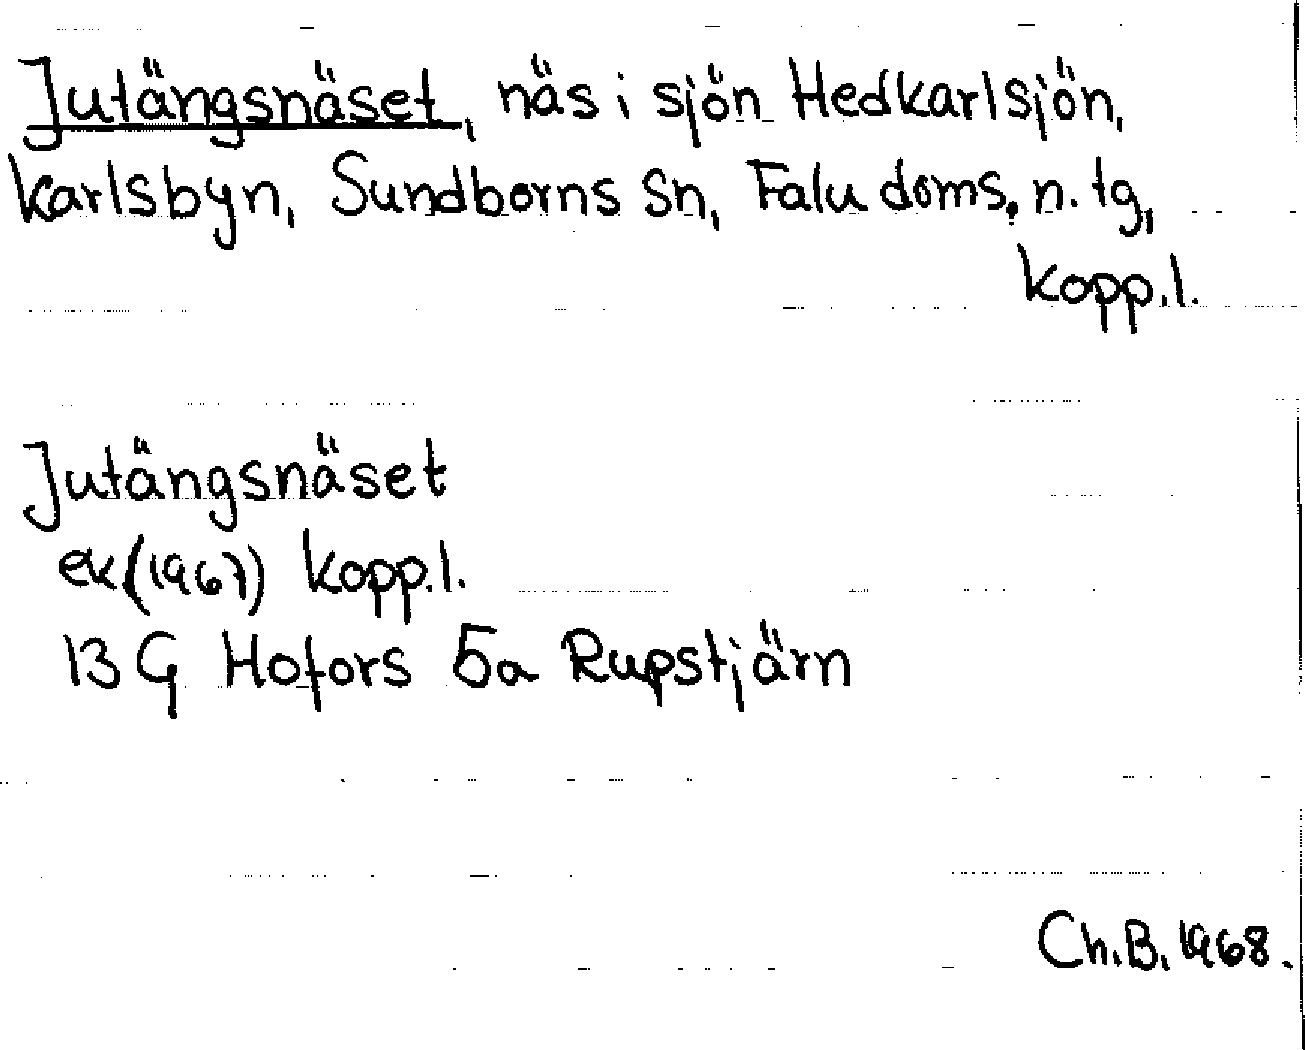 Jutängsnäset, näs i sjön Hedkarlsjön,
Karlsbyn, Sundborns Sn, Falu doms. n. tg,
Kopp.l.
Jutängsnäset
ek (1967) Kopp.l.
13 G Hofors 5a Rupstjärn
Ch.B. 1968.